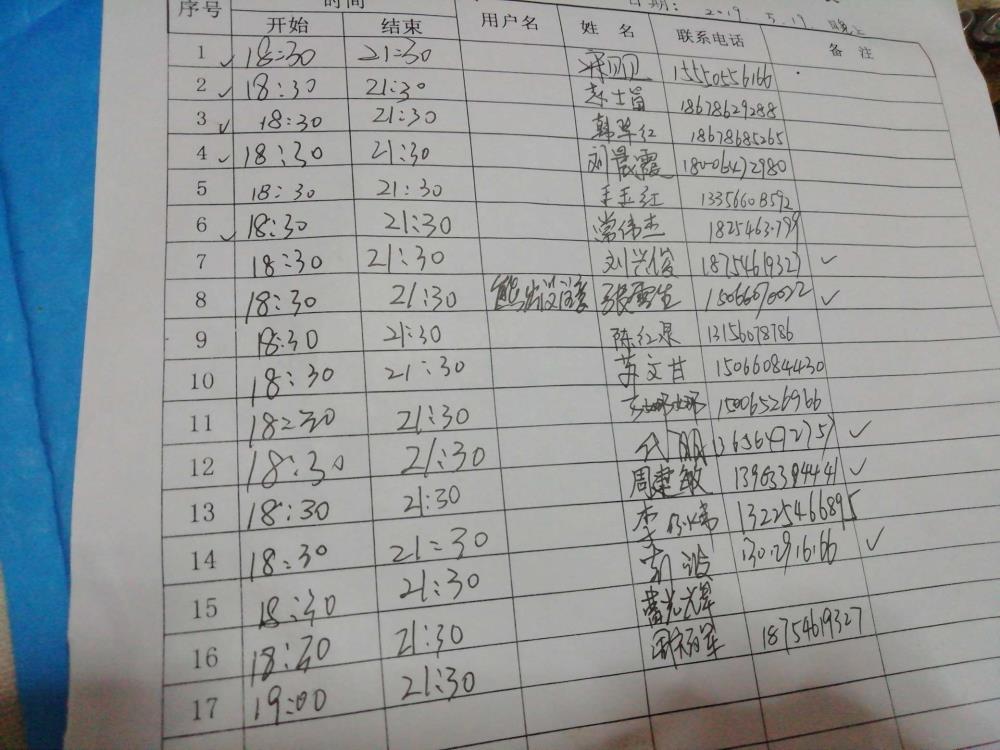 序号 时间 用户名 姓 名 联系电话 备 注
日期: 2019 5.19 晚上
开始 结束
1 18:30 21:30 15550556166
2 18:30 21:30 18678629288
3 18:30 21:30 韩翠红 18678685265
4 18:30 21:30 刘晨霞 18006472980
5 18:30 21:30 王玉红 13356608592
6 18:30 21:30 常伟杰
7 18:30 21:30 刘兴俊 18754619327
8 18:30 21:30 张雪生 15066070022
9 18:30 21:30 13156078786
10 18:30 21:30 苏文甘 15066084430
11 18:30 21:30 15006526966
12 18:30 21:30 代朋
13 18:30 21:30 周建敏 13963394441
14 18:30 21:30 13225466895
15 18:30 21:30
16 18:30 21:30
17 19:00 21:30 18754619327